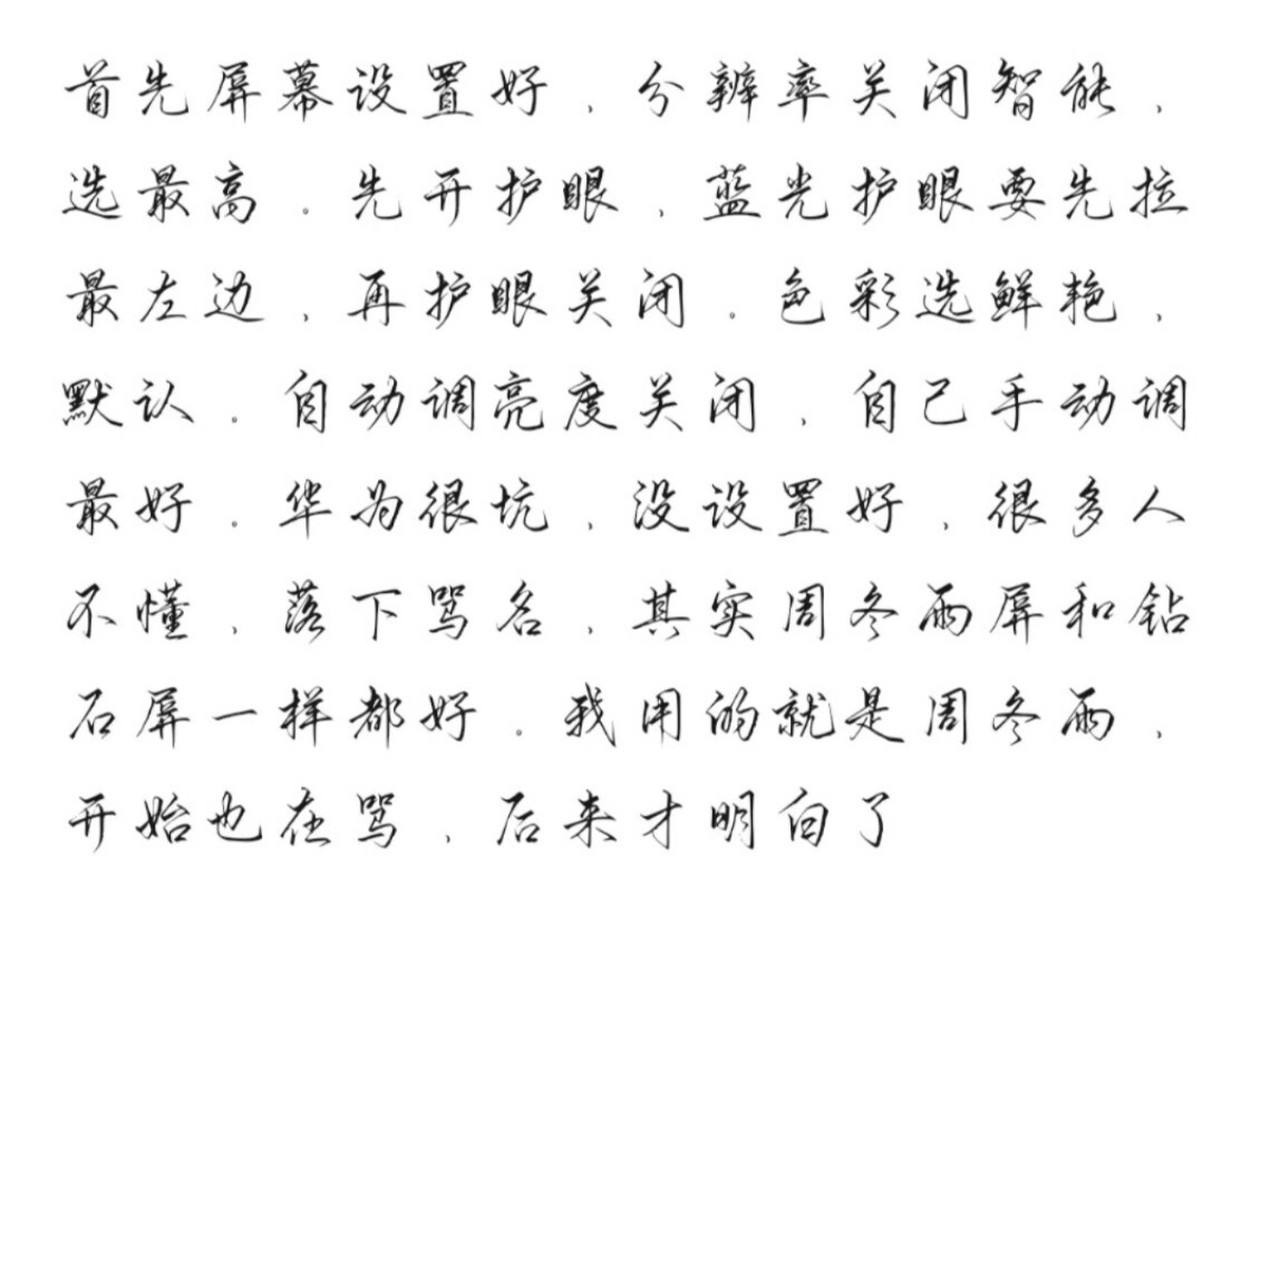 首先屏幕设置好，分辨率关闭智能，
选最高。先开护眼，蓝光护眼要先拉
最左边，再护眼关闭。色彩选鲜艳，
默认。自动调亮度关闭，自己手动调
最好。华为很坑，没设置好，很多人
不懂，落下骂名，其实周冬雨屏和钻
石屏一样都好。我用的就是周冬雨，
开始也在骂，后来才明白了